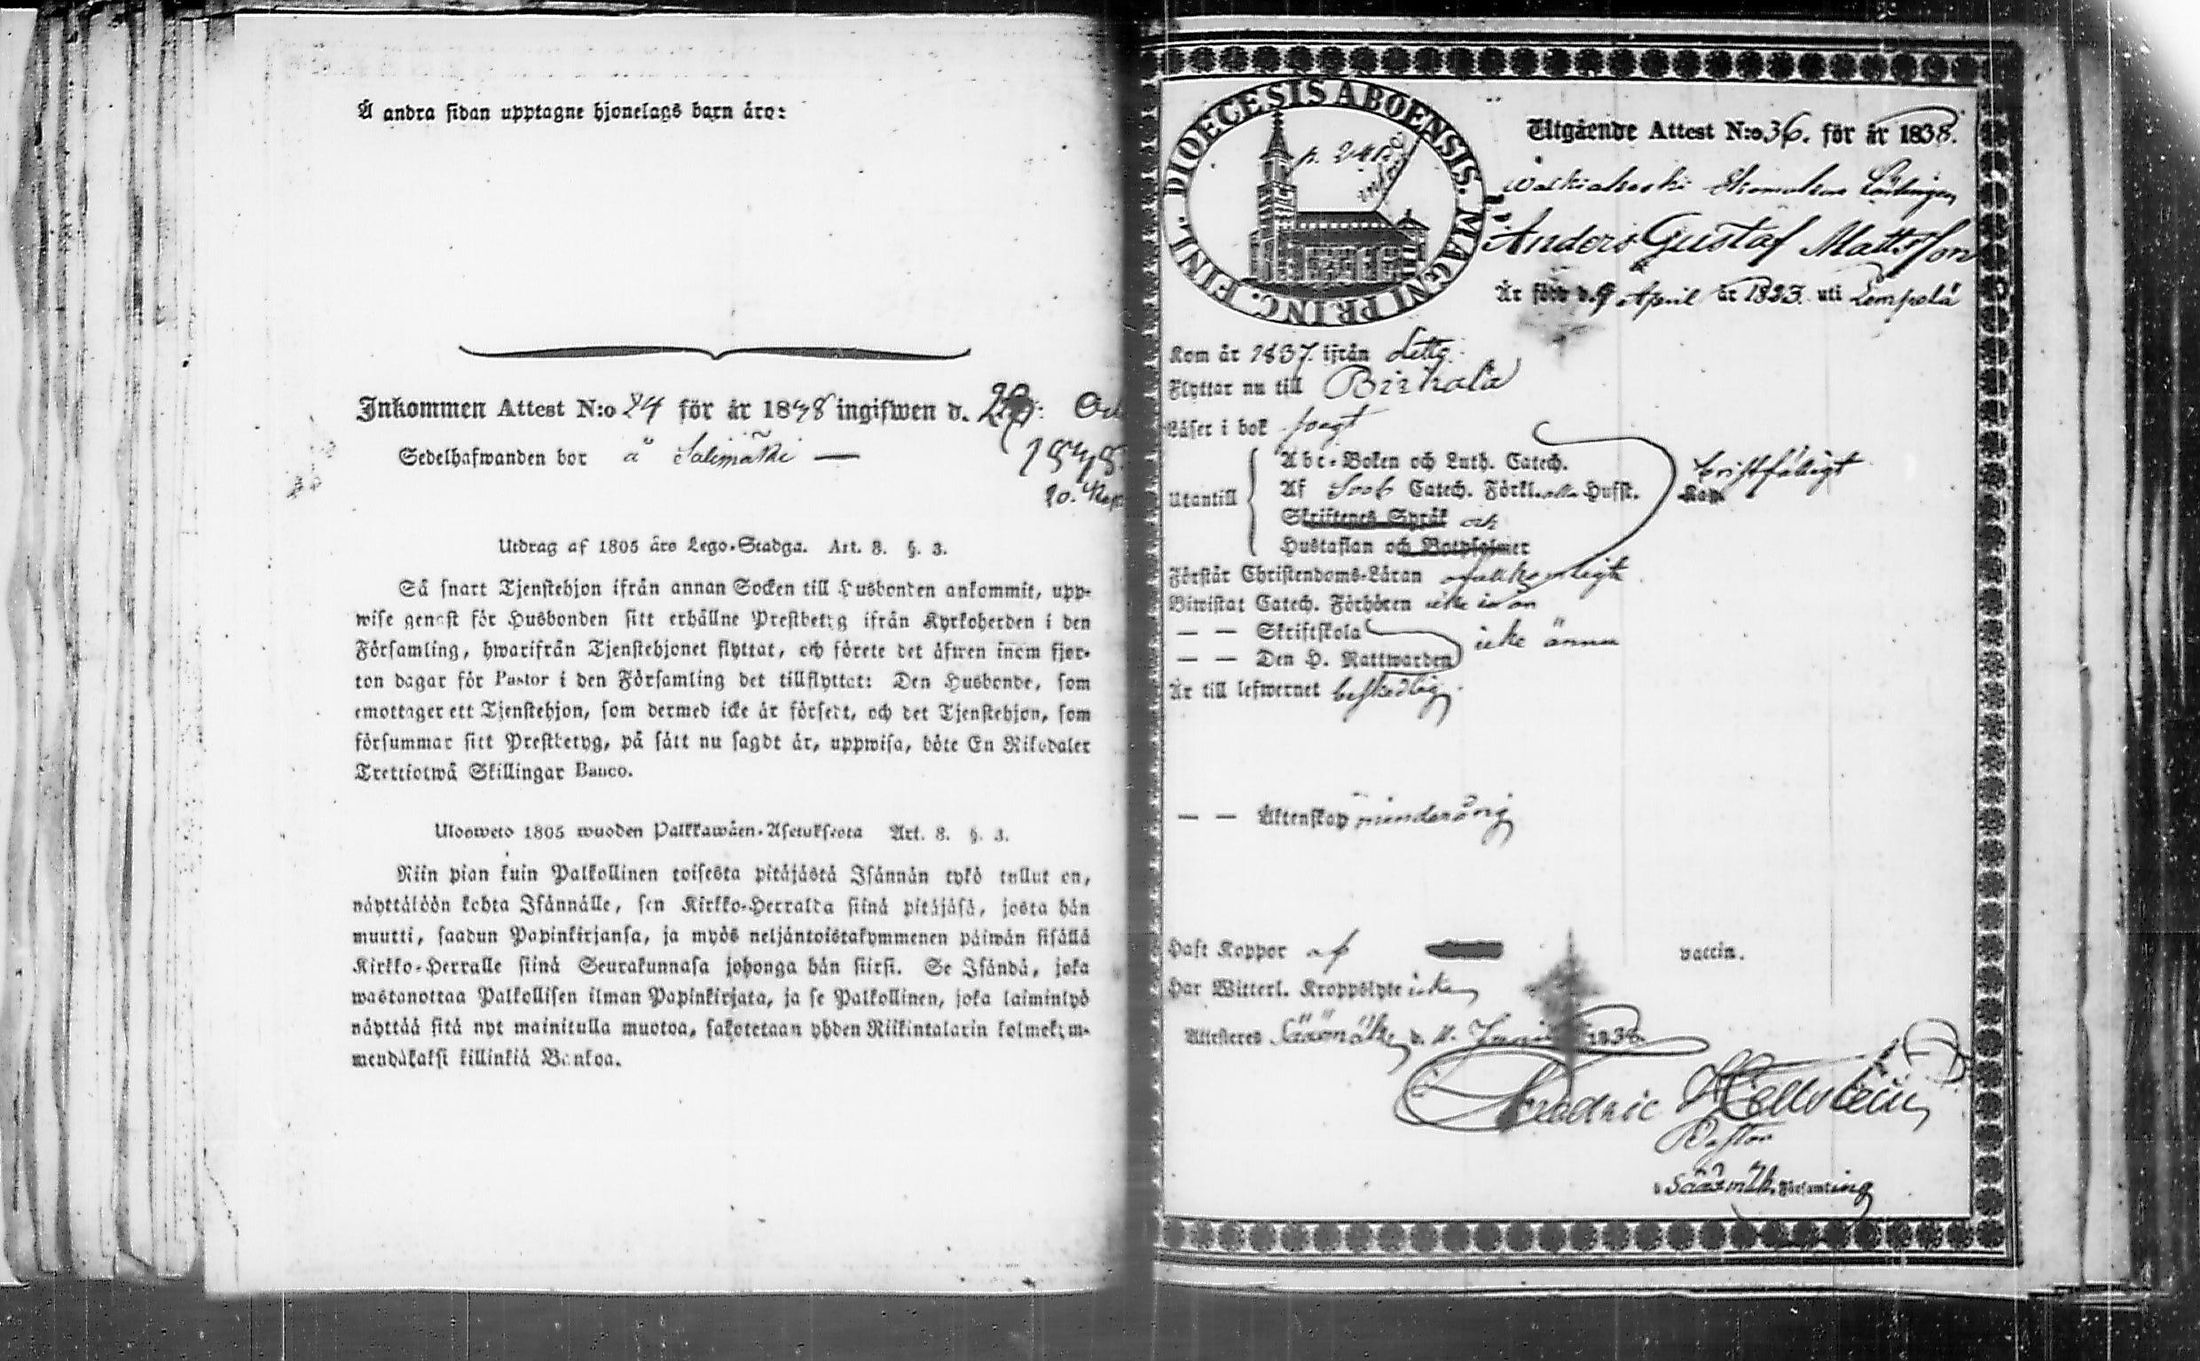 Å andra sidan upptagne hjonelags barn äro:
Inkommen Attest N:o 24 för år 1848 ingifwen d. 29:
1848.
Sedelhafwanden bor å Salimäki —
Utdrag af 1805 års Lego-Stadga. Art. 8. §. 3.
Så snart Tjenstehjon ifrån annan Socken till Husbonden ankommit, upp-
wise genast för Husbonden sitt erhållne Prestbetyg ifrån Kyrkoherden i den
Församling, hwarifrån Tjenstehjonet flyttat, och förete det äfwen inom fjor-
ton dagar för Pastor i den Församling det tillflyttat: Den Husbonde, som
emottager ett Tjenstehjon, som dermed icke är försedt, och det Tjenstehjon, som
försummar sitt Prestbetyg, på sätt nu sagdt är, uppwisa, böte En Riksdaler
Trettiotwå Skillingar Banco.
Ulosweto 1805 wuoden Palkkawäen-Asetuksesta Art. 8. §. 3.
Niin pian kuin Palkollinen toisesta pitäjästä Isännän tykö tullut on,
näyttäköön kohta Isännälle, sen Kirkko-Herralta siinä pitäjäsä, josta hän
muutti, saadun Papinkirjansa, ja myös neljäntoistakymmenen päiwän sisällä
Kirkko-Herralle siinä Seurakunnasa johonga hän siirsi. Se Isändä, joka
wastanottaa Palkollisen ilman Papinkirjata, ja se Palkollinen, joka laiminlyö
näyttää sitä nyt mainitulla muotoa, sakotetaan yhden Riikintalarin kolmekym-
mendäkaksi killinkiä Bankoa.
DIOECESIS ABOENSIS. MAGNI PRINC. FINL.
Utgående Attest N:o 36. för år 1838.
Anders Gustaf Mattsson
Är född d. 9 April år 1823. uti Lempälä
Kom år 1837. ifrån ditto.
Flyttar nu till Birkala
Läser i bok swagt
Utantill
Abc-Boken och Luth. Catech.
Af Catech. Förkl. Husst.
Skriftenes Språk och
Hustaflan och Botpsalmer
bristfäligt
Förstår Christendoms-Läran ofullkomligt
Biwistat Catech. Förhören
— — Skriftskola
— — Den H. Nattwarden
icke ännu
Är till lefwernet beskedlig.
— — Äktenskap minderårig
Haft Koppor af vaccin.
Har Witterl. Kroppslyte icke
Attesteres Sääxmäki d. Juni 1838
Fredric Hellstein
Pastor
i Sääxmäki Församling